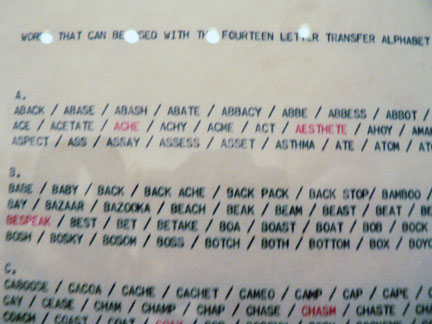 WORDS THAT CAN BE USED WITH THE FOURTEEN LETTER TRANSFER ALPHABET
A.
ABACK / ABASE / ABASH / ABATE / ABBACY / ABBE / ABBESS / ABBOT /
ACE / ACETATE / ACHE / ACHY / ACME / ACT / AESTHETE / AHOY /
ASPECT / ASS / ASSAY / ASSESS / ASSET / ASTHMA / ATE / ATOM /
B.
BABE / BABY / BACK / BACK ACHE / BACK PACK / BACK STOP/ BAMBOO /
BAY / BAZAAR / BAZOOKA / BEACH / BEAK / BEAM / BEAST / BEAT /
BESPEAK / BEST / BET / BETAKE / BOA / BOAST / BOAT / BOB / BOCK
BOSH / BOSKY / BOSOM / BOSS / BOTCH / BOTH / BOTTOM / BOX /
C.
CABOOSE / CACOA / CACHE / CACHET / CAMEO / CAMP / CAP / CAPE /
CAY / CEASE / CHAM / CHAMP / CHAP / CHASE / CHASM / CHASTE /
COACH / COAST / COAT /